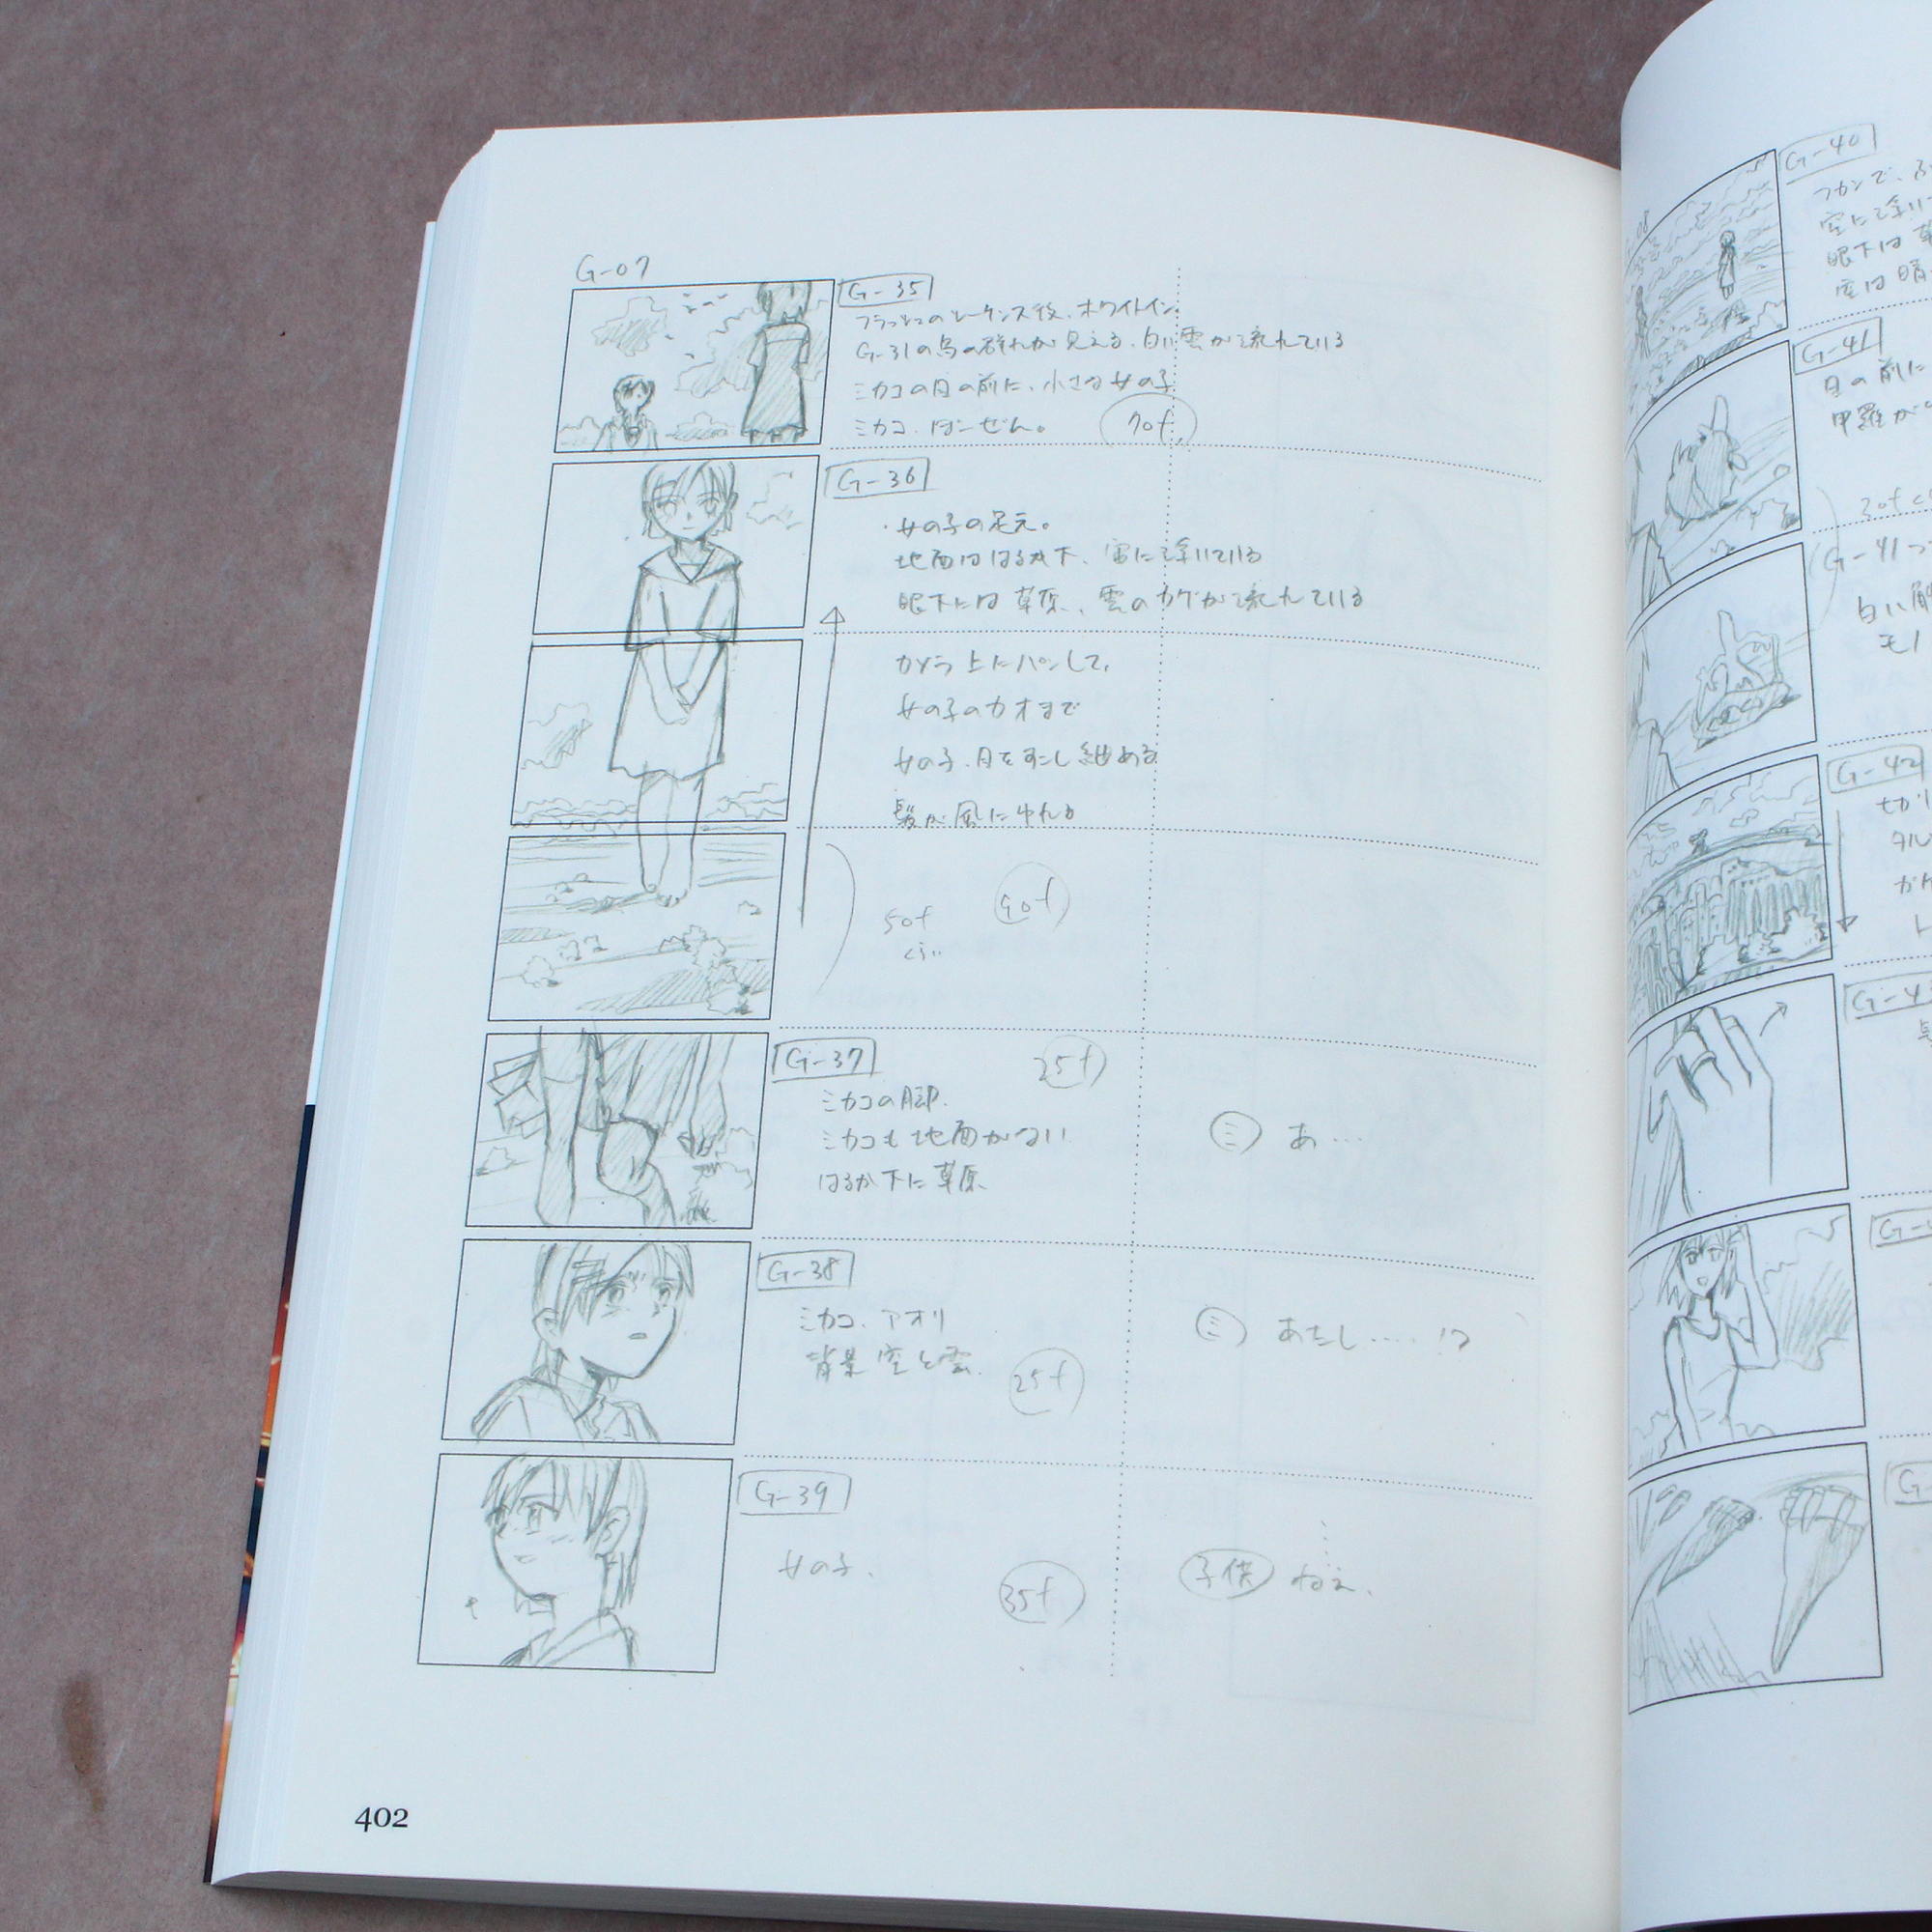 G-07
G-35
フラッシュのシーケンス後、ホワイトイン。
G-31の鳥の群れが見える、白い雲が流れている
ミカコの目の前に、小さな女の子
ミカコ、ぼーぜん。
70f
G-36
・女の子の足元。
地面ははるか下、宙に浮いている
眼下には草原、雲のカゲが流れている
カメラ上にパンして、
女の子のカオまで
女の子、目をすこし細める
髪が風にゆれる
50f
90f
くらい
G-37
25f
ミカコの脚。
ミカコも地面がない
はるか下に草原
ミ あ…
G-38
ミカコ、アオリ
背景 空と雲。
25f
ミ あたし……!?
G-39
女の子、
35f
子供 ねえ、
402
G-08
G-40
フカンで、
空に浮い
眼下は草
空は晴
G-41
目の前に
甲羅が
30f
G-41
白い
モノ
G-42
G-4